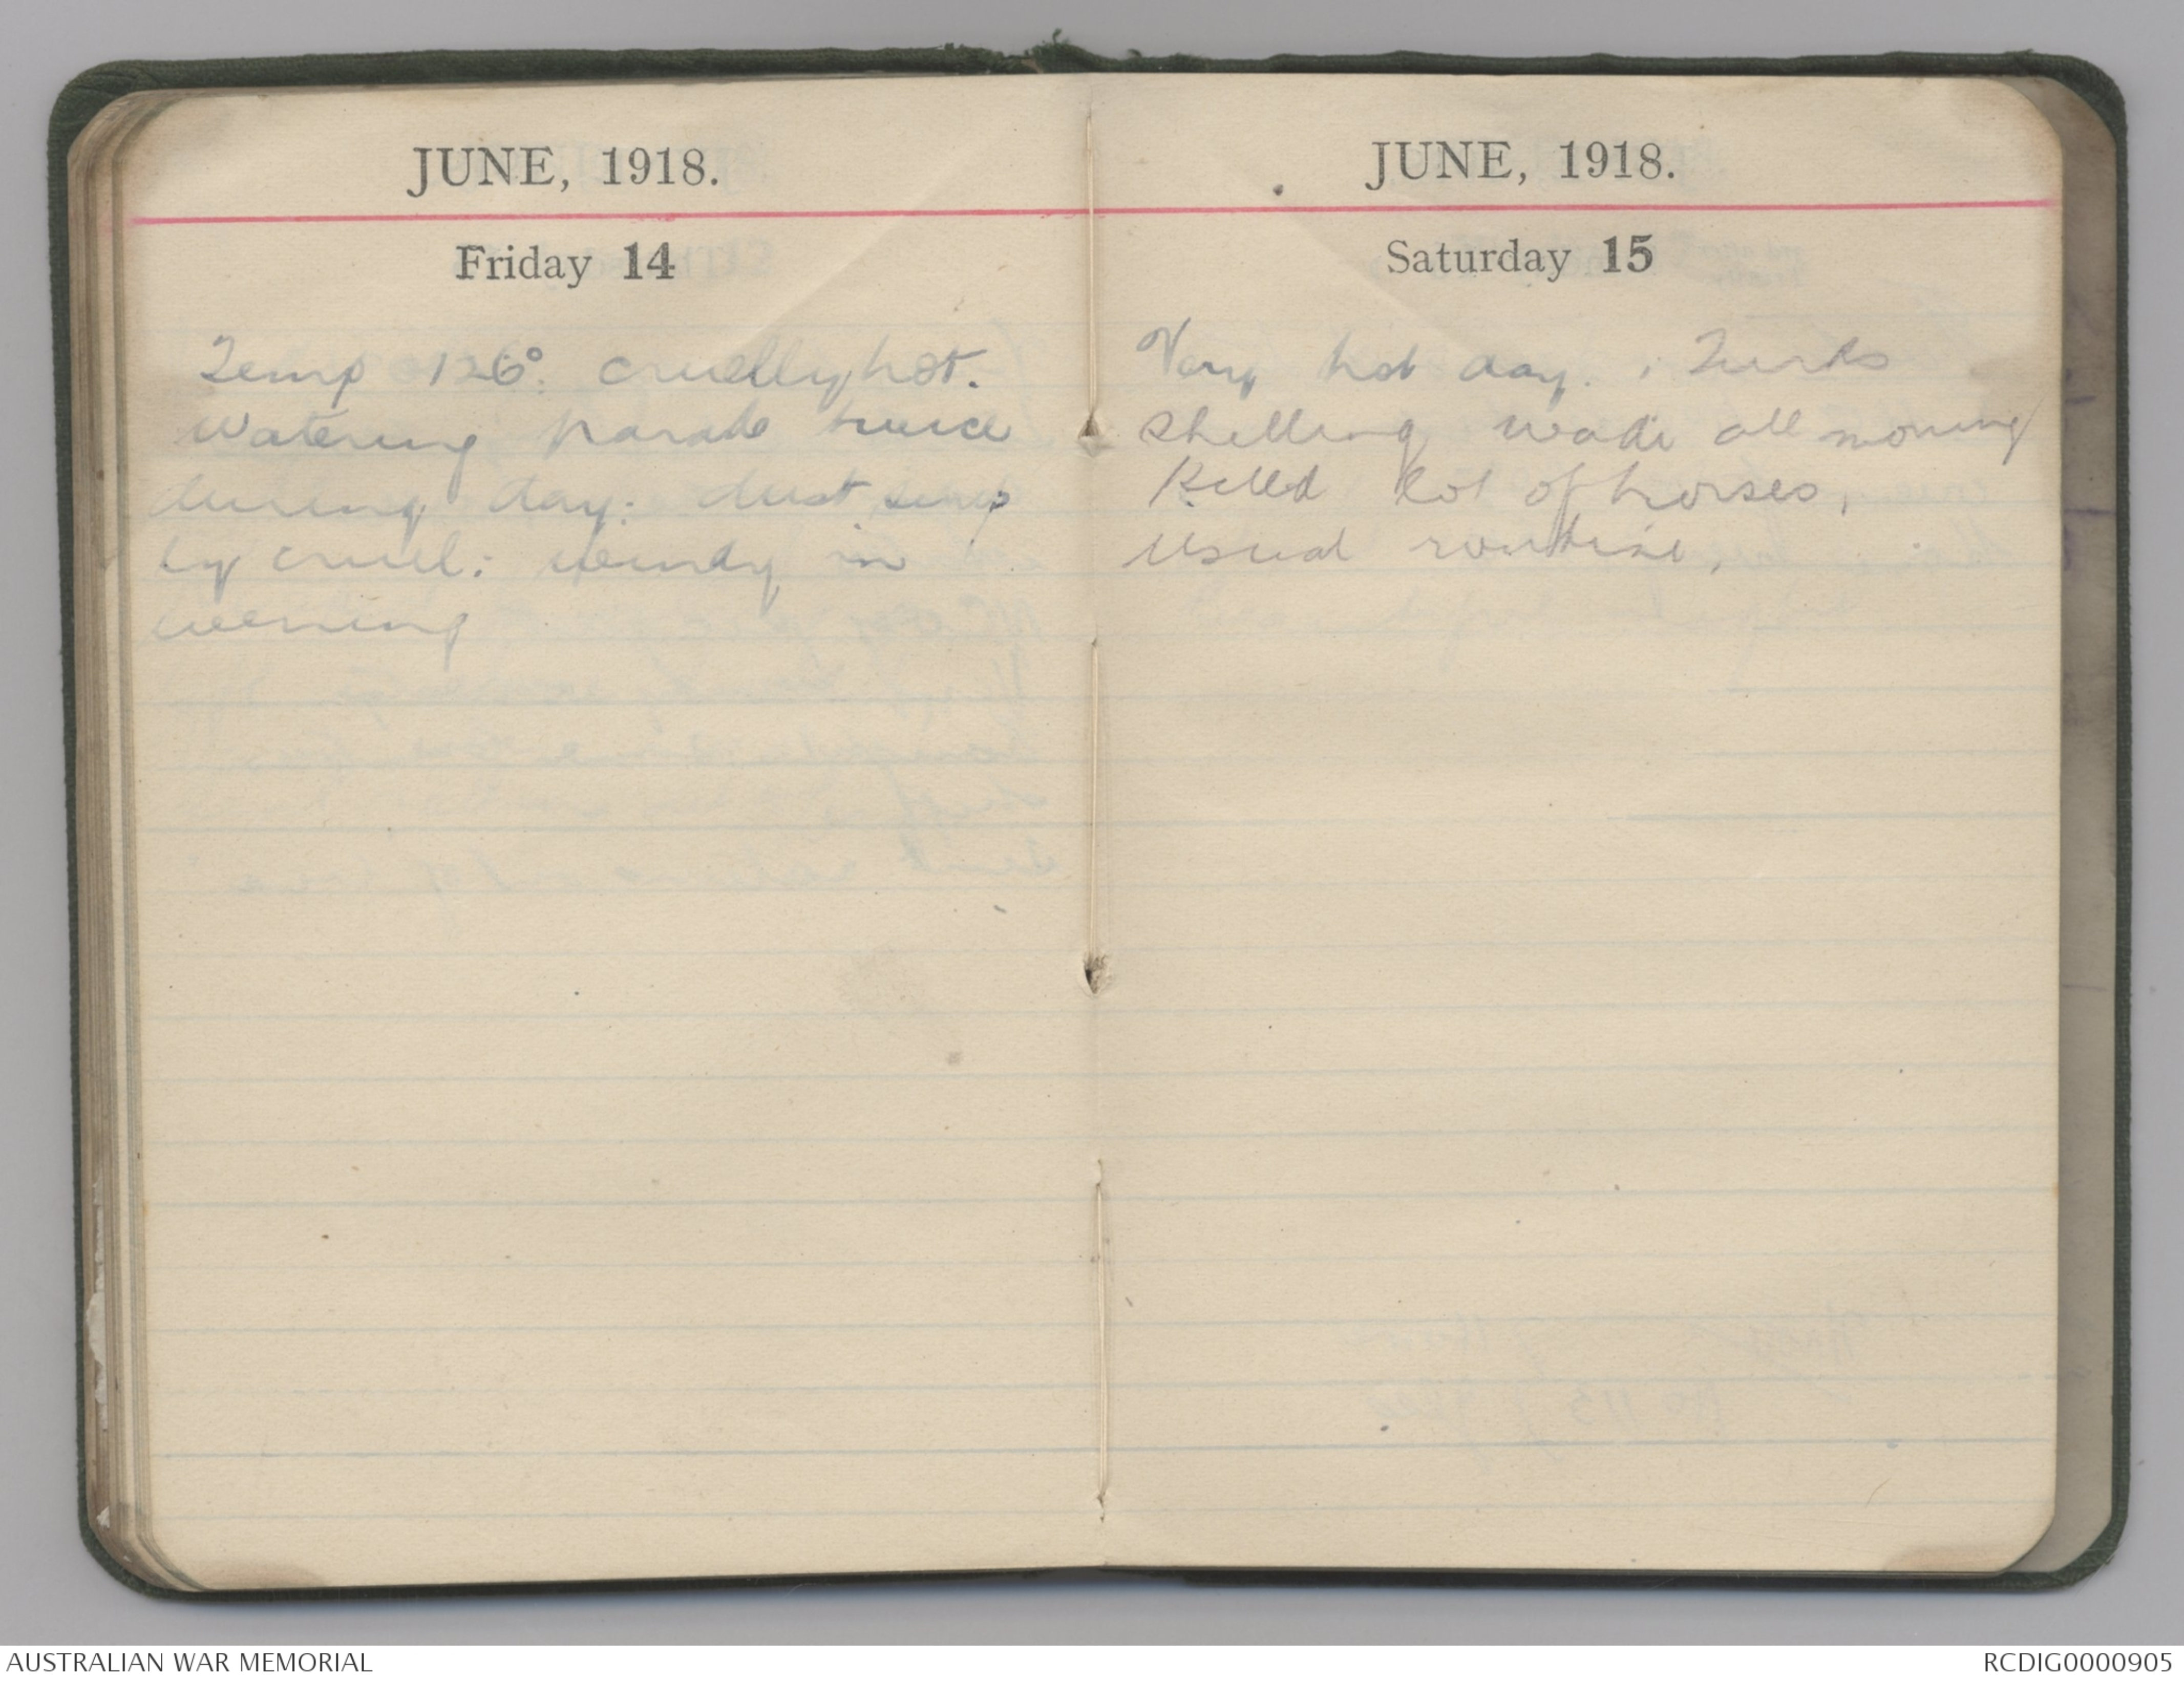 JUNE, 1918.
Friday 14
Temp 126°. cruelly hot.
Watering parade twice
during day. dust simp
ly cruel: windy in
evening
JUNE, 1918.
Saturday 15
Very hot day. Turks
shelling wadi all morning
Killed lot of horses,
usual routine.
AUSTRALIAN WAR MEMORIAL
RCDIG0000905